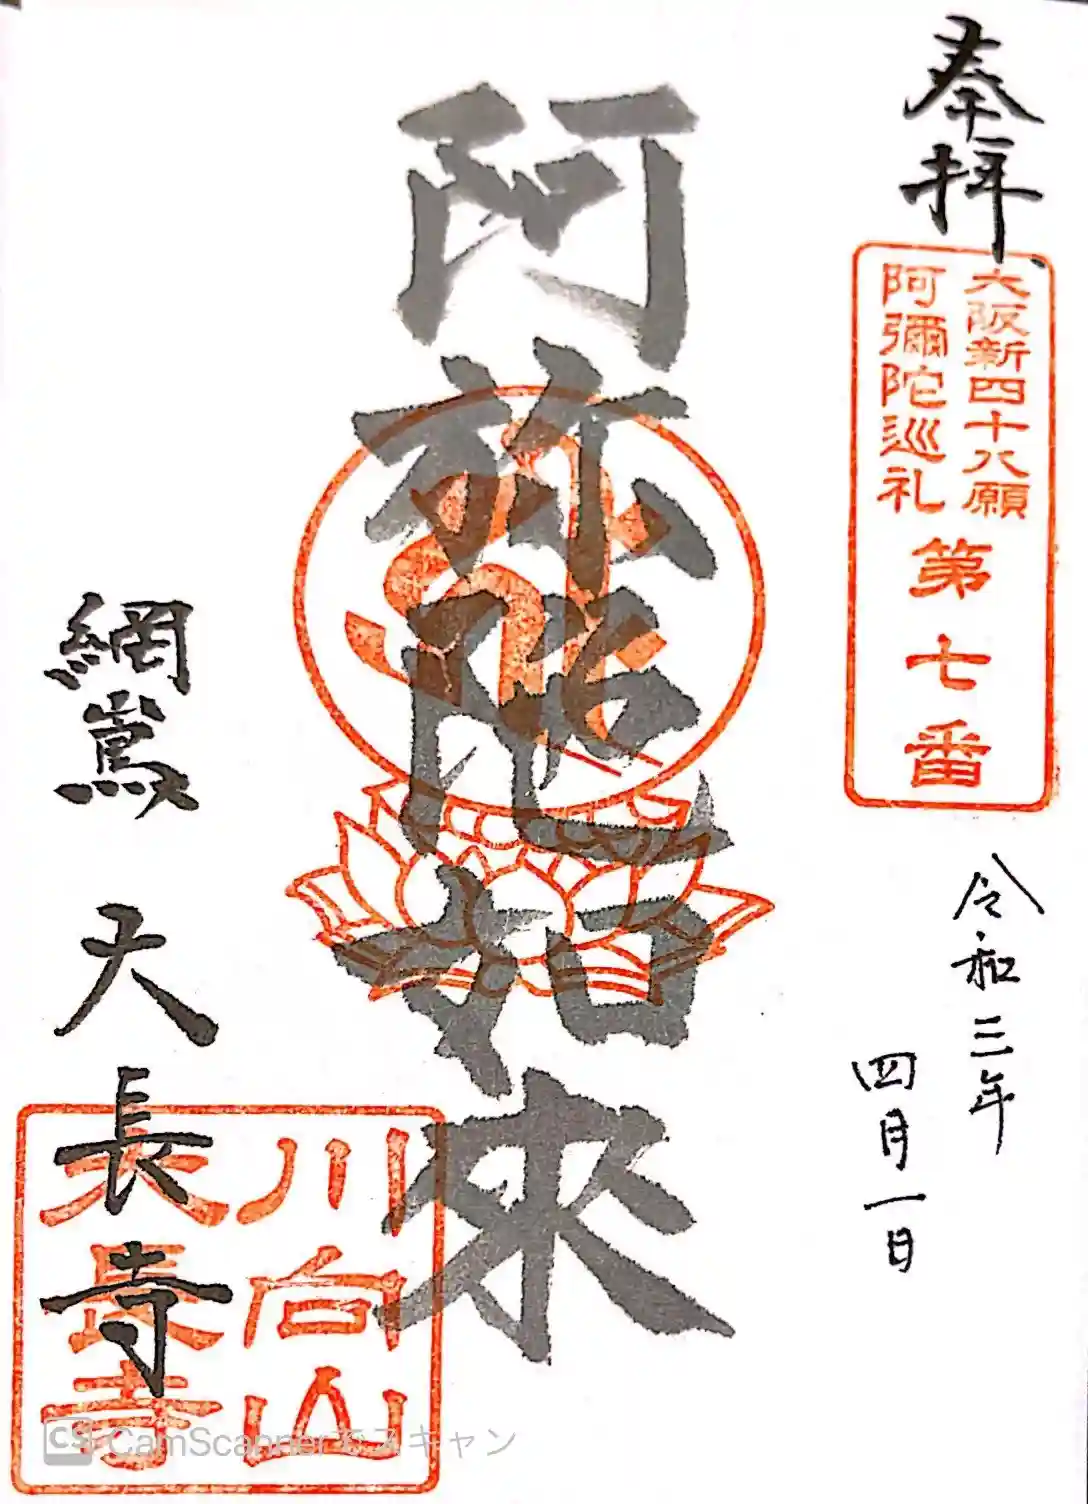 奉拝
大阪新四十八願
阿彌陀巡礼
第七番
令和三年
四月一日
阿弥陀如来
川向山
大長寺
網嶌 大長寺
CS CamScannerでスキャン